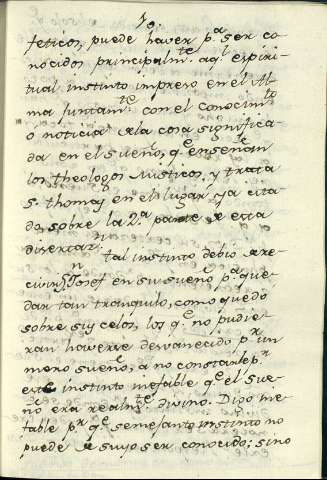 10.
feticos, puede haver p.ª ser co
nocidos principalm.te aq.l espiri-
tual instinto impreso en el Al
ma juntam.te con el conocim.to
o noticia de la cosa significa-
da en el sueño, q.e enseñan
los theologos Misticos, y trata
S. thomas en el lugar ya cita
do, sobre la 2.ª parte de esta
disertac.n
tal instinto debio de re
civir S.n Josef en su sueño p.ª que-
dar tan tranquilo, como quedó
sobre sus celos, los q.e no pudie-
ran haverse desvanecido p.r un
mero sueño, a no constarle p.r
este instinto inefable q.e el sue-
ño era realm.te divino. Digo ine
fable p.r q.e semejante instinto no
puede de suyo ser conocido; sino